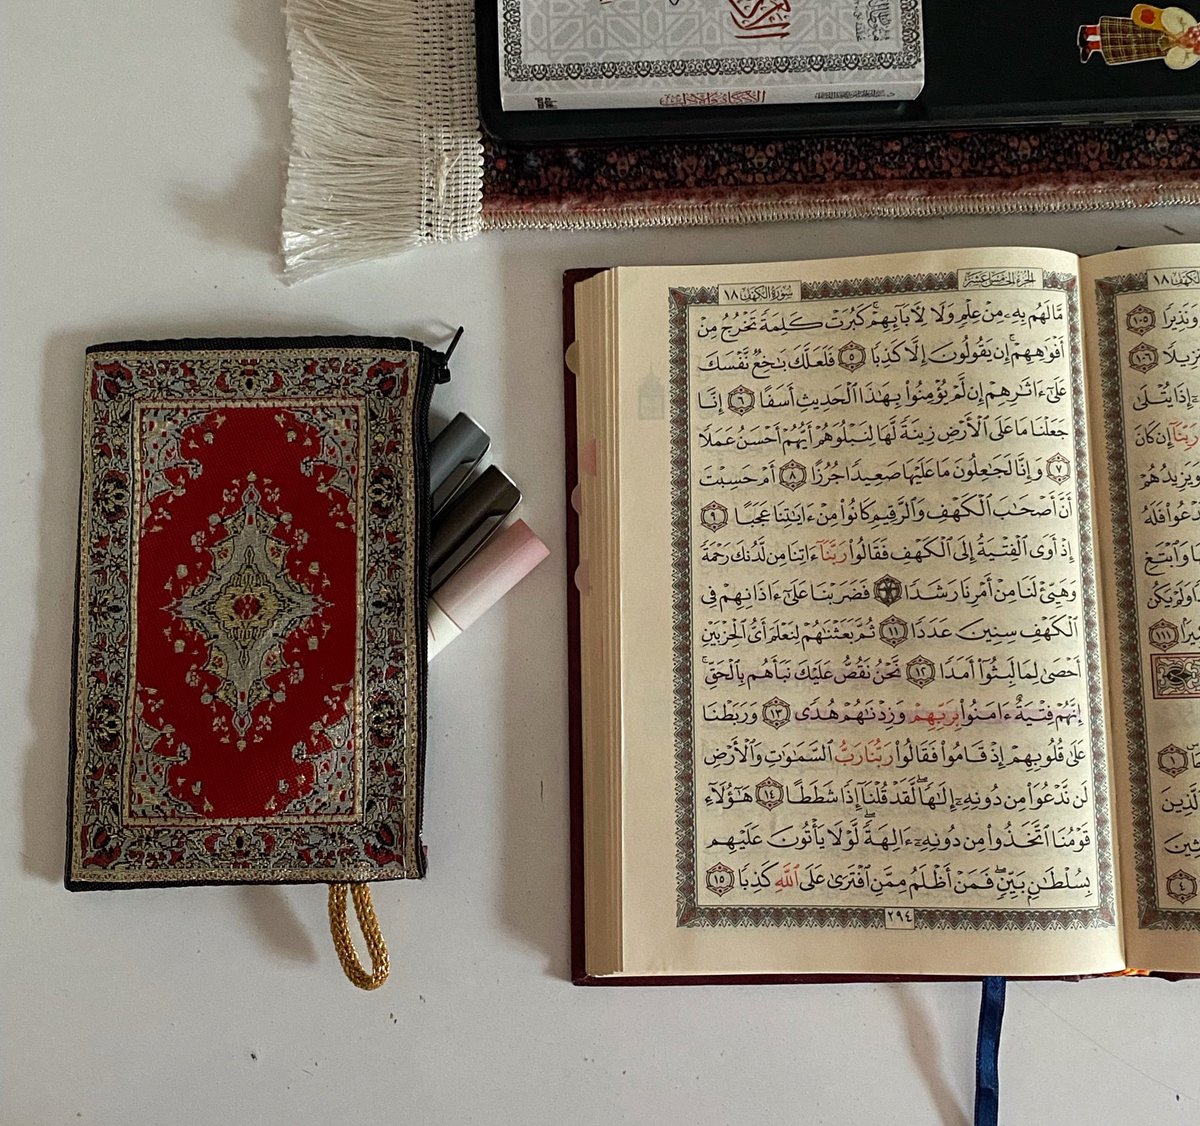 ١٨
وَنَذِيرًا ١٠٥
١٠٦
إِذَا يُتْلَىٰ
رَبِّنَآ إِن كَانَ
وَيَزِيدُهُمْ
تَدْعُوا۟ فَلَهُ
وَٱبْتَغِ
وَلَمْ يَكُن
١١١
١
ٱلَّذِينَ
٤
الجزء الخامس عشر
سورة الكهف ١٨
مَّا لَهُم بِهِۦ مِنْ عِلْمٍ وَلَا لِـَٔابَآئِهِمْ ۚ كَبُرَتْ كَلِمَةً تَخْرُجُ مِنْ
أَفْوَٰهِهِمْ ۚ إِن يَقُولُونَ إِلَّا كَذِبًا ٥ فَلَعَلَّكَ بَـٰخِعٌ نَّفْسَكَ
عَلَىٰٓ ءَاثَـٰرِهِمْ إِن لَّمْ يُؤْمِنُوا۟ بِهَـٰذَا ٱلْحَدِيثِ أَسَفًا ٦ إِنَّا
جَعَلْنَا مَا عَلَى ٱلْأَرْضِ زِينَةً لَّهَا لِنَبْلُوَهُمْ أَيُّهُمْ أَحْسَنُ عَمَلًا
٧ وَإِنَّا لَجَـٰعِلُونَ مَا عَلَيْهَا صَعِيدًا جُرُزًا ٨ أَمْ حَسِبْتَ
أَنَّ أَصْحَـٰبَ ٱلْكَهْفِ وَٱلرَّقِيمِ كَانُوا۟ مِنْ ءَايَـٰتِنَا عَجَبًا ٩
إِذْ أَوَى ٱلْفِتْيَةُ إِلَى ٱلْكَهْفِ فَقَالُوا۟ رَبَّنَآ ءَاتِنَا مِن لَّدُنكَ رَحْمَةً
وَهَيِّئْ لَنَا مِنْ أَمْرِنَا رَشَدًا ١٠ فَضَرَبْنَا عَلَىٰٓ ءَاذَانِهِمْ فِى
ٱلْكَهْفِ سِنِينَ عَدَدًا ١١ ثُمَّ بَعَثْنَـٰهُمْ لِنَعْلَمَ أَىُّ ٱلْحِزْبَيْنِ
أَحْصَىٰ لِمَا لَبِثُوٓا۟ أَمَدًا ١٢ نَّحْنُ نَقُصُّ عَلَيْكَ نَبَأَهُم بِٱلْحَقِّ ۚ
إِنَّهُمْ فِتْيَةٌ ءَامَنُوا۟ بِرَبِّهِمْ وَزِدْنَـٰهُمْ هُدًى ١٣ وَرَبَطْنَا
عَلَىٰ قُلُوبِهِمْ إِذْ قَامُوا۟ فَقَالُوا۟ رَبُّنَا رَبُّ ٱلسَّمَـٰوَٰتِ وَٱلْأَرْضِ
لَن نَّدْعُوَا۟ مِن دُونِهِۦٓ إِلَـٰهًا ۖ لَّقَدْ قُلْنَآ إِذًا شَطَطًا ١٤ هَـٰٓؤُلَآءِ
قَوْمُنَا ٱتَّخَذُوا۟ مِن دُونِهِۦٓ ءَالِهَةً ۖ لَّوْلَا يَأْتُونَ عَلَيْهِم
بِسُلْطَـٰنٍۭ بَيِّنٍ ۖ فَمَنْ أَظْلَمُ مِمَّنِ ٱفْتَرَىٰ عَلَى ٱللَّهِ كَذِبًا ١٥
٢٩٤